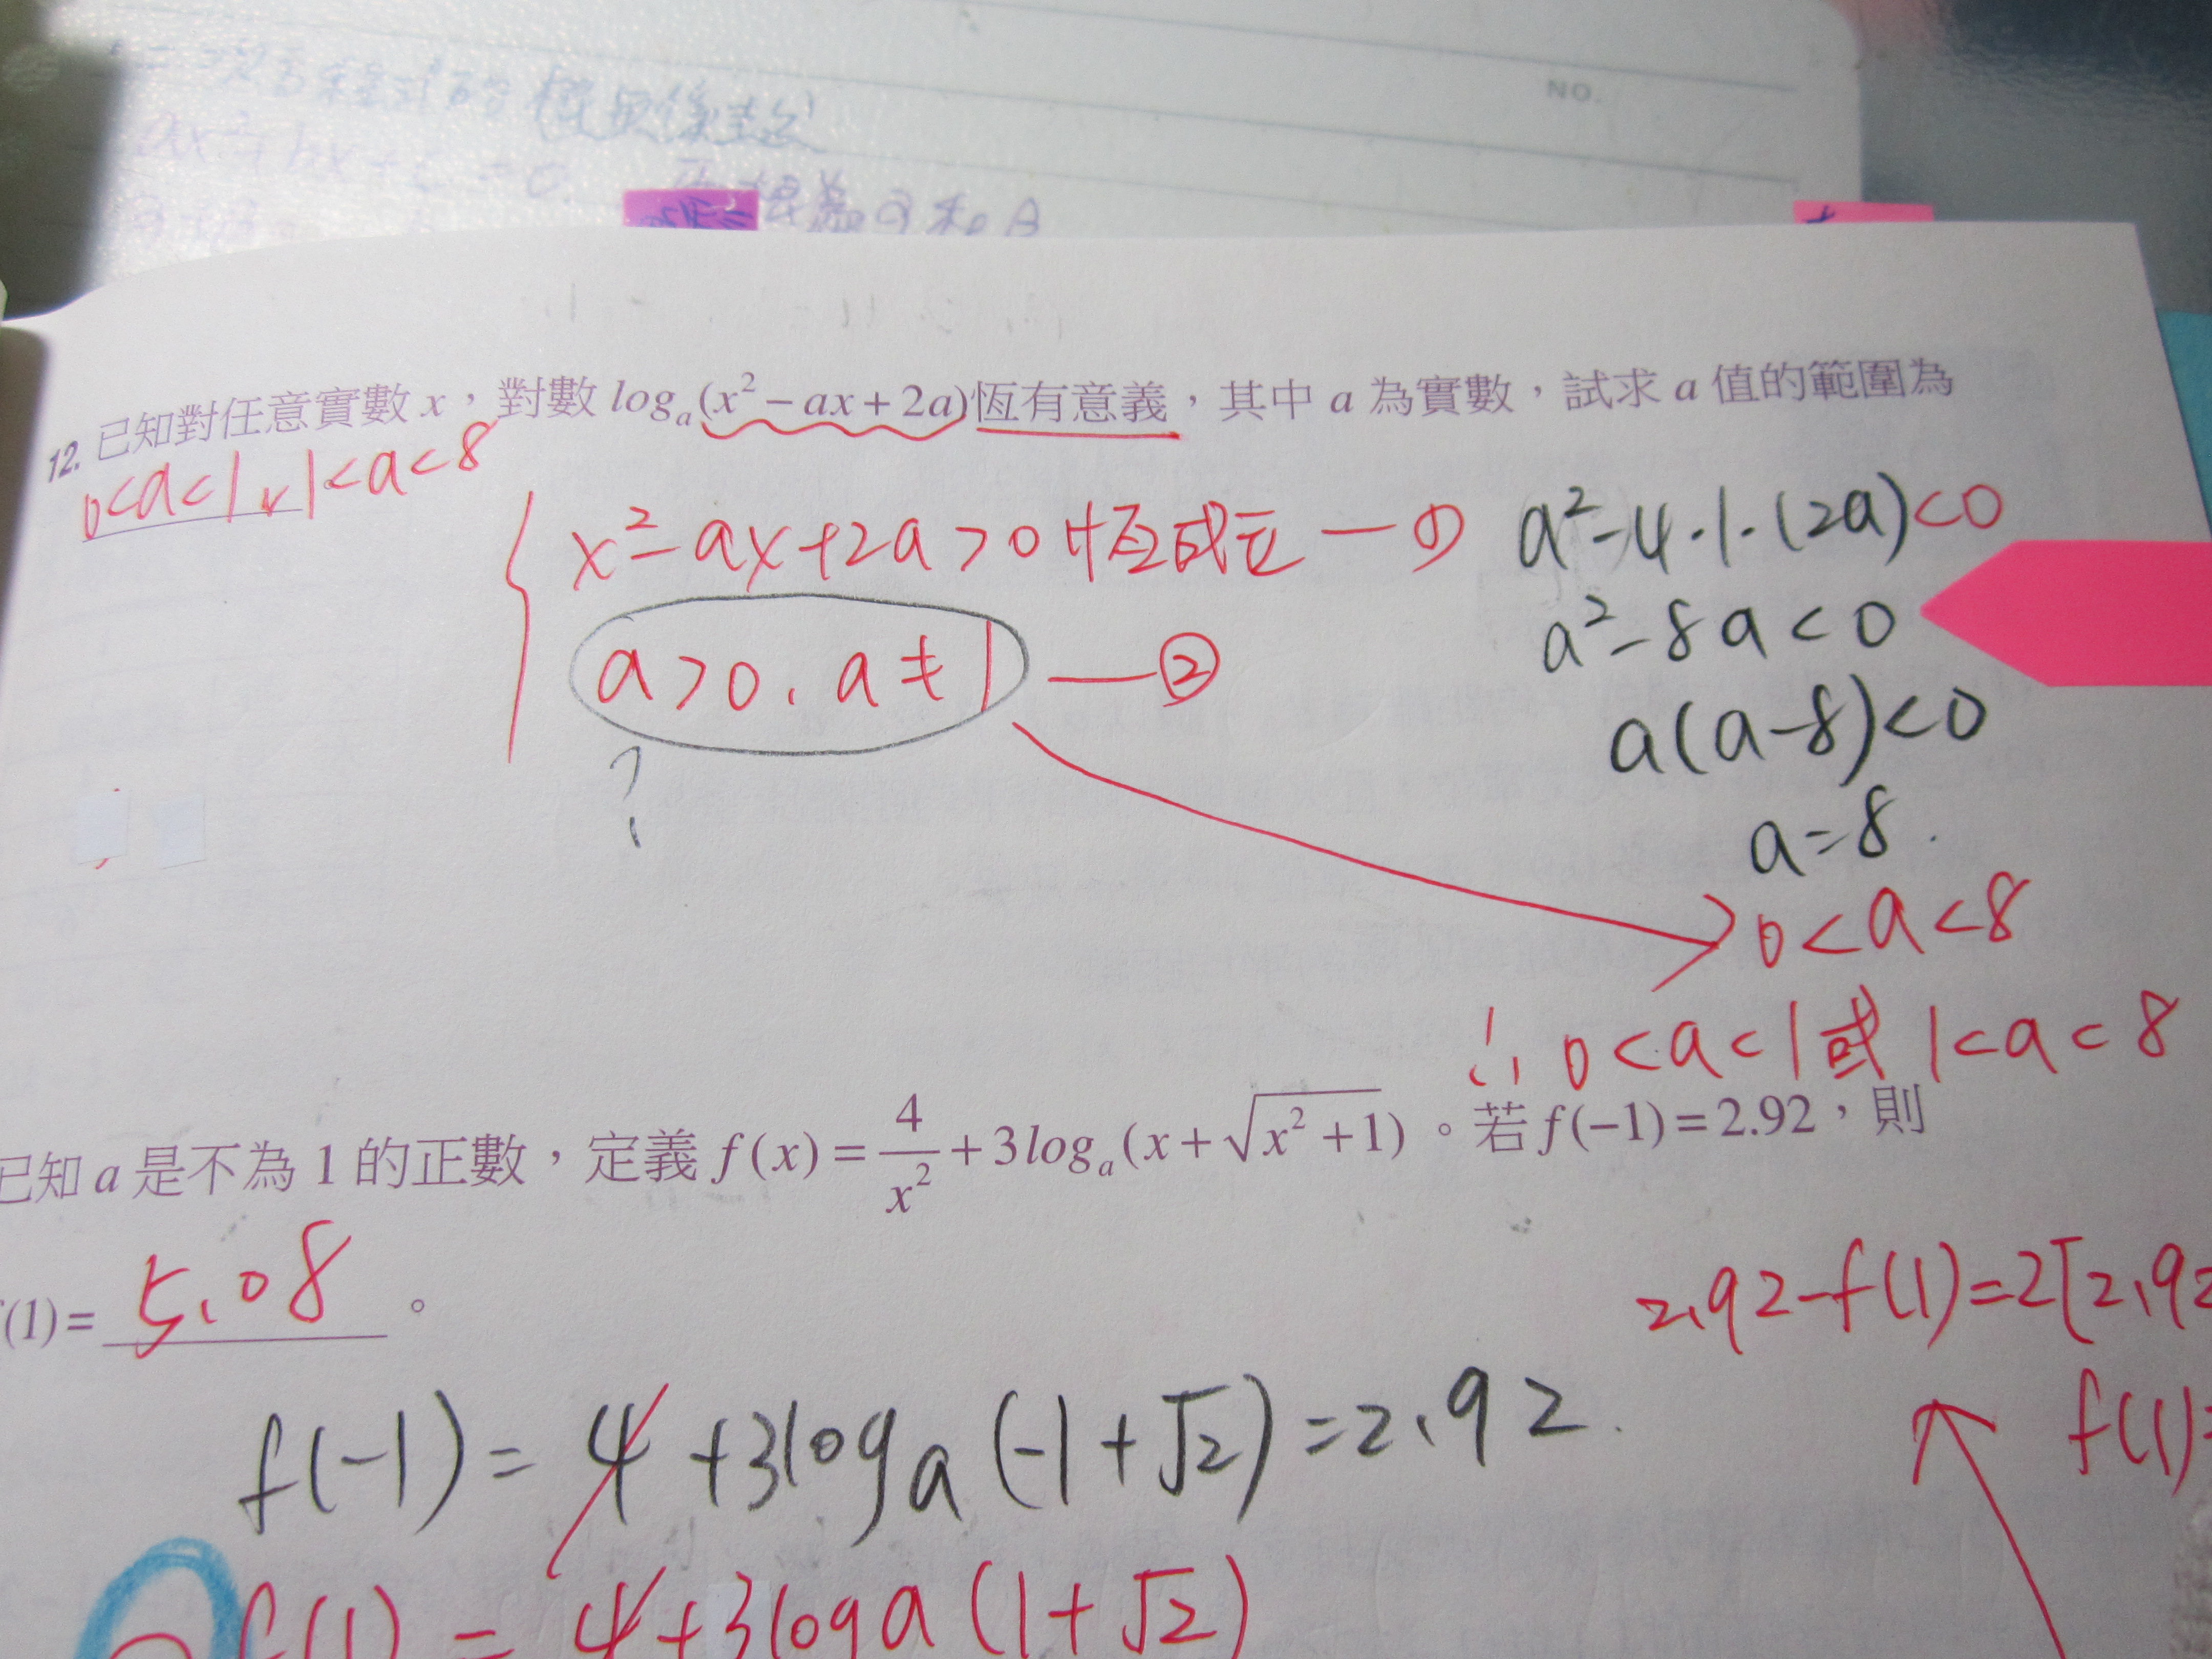 NO.
二次方程式的根與係數
ax²+bx+c=0.
12. 已知對任意實數 x，對數 logₐ(x²－ax＋2a)恆有意義，其中 a 為實數，試求 a 值的範圍為
0<a<1, 1<a<8
x²－ax+2a>0 恆成立 — ①
a>0, a≠1 — ②
?
a²－4·1·(2a)<0
a²－8a<0
a(a－8)<0
a=8.
0<a<8
∴ 0<a<1 或 1<a<8
已知 a 是不為 1 的正數，定義 f(x)=4/x²+3logₐ(x+√(x²+1))。若 f(−1)=2.92，則
(1)= 5.08 。
2.92－f(1)=2[2.92
f(1)=
f(−1)= 4 +3logₐ(−1+√2)=2.92.
f(1) = 4+3logₐ(1+√2)